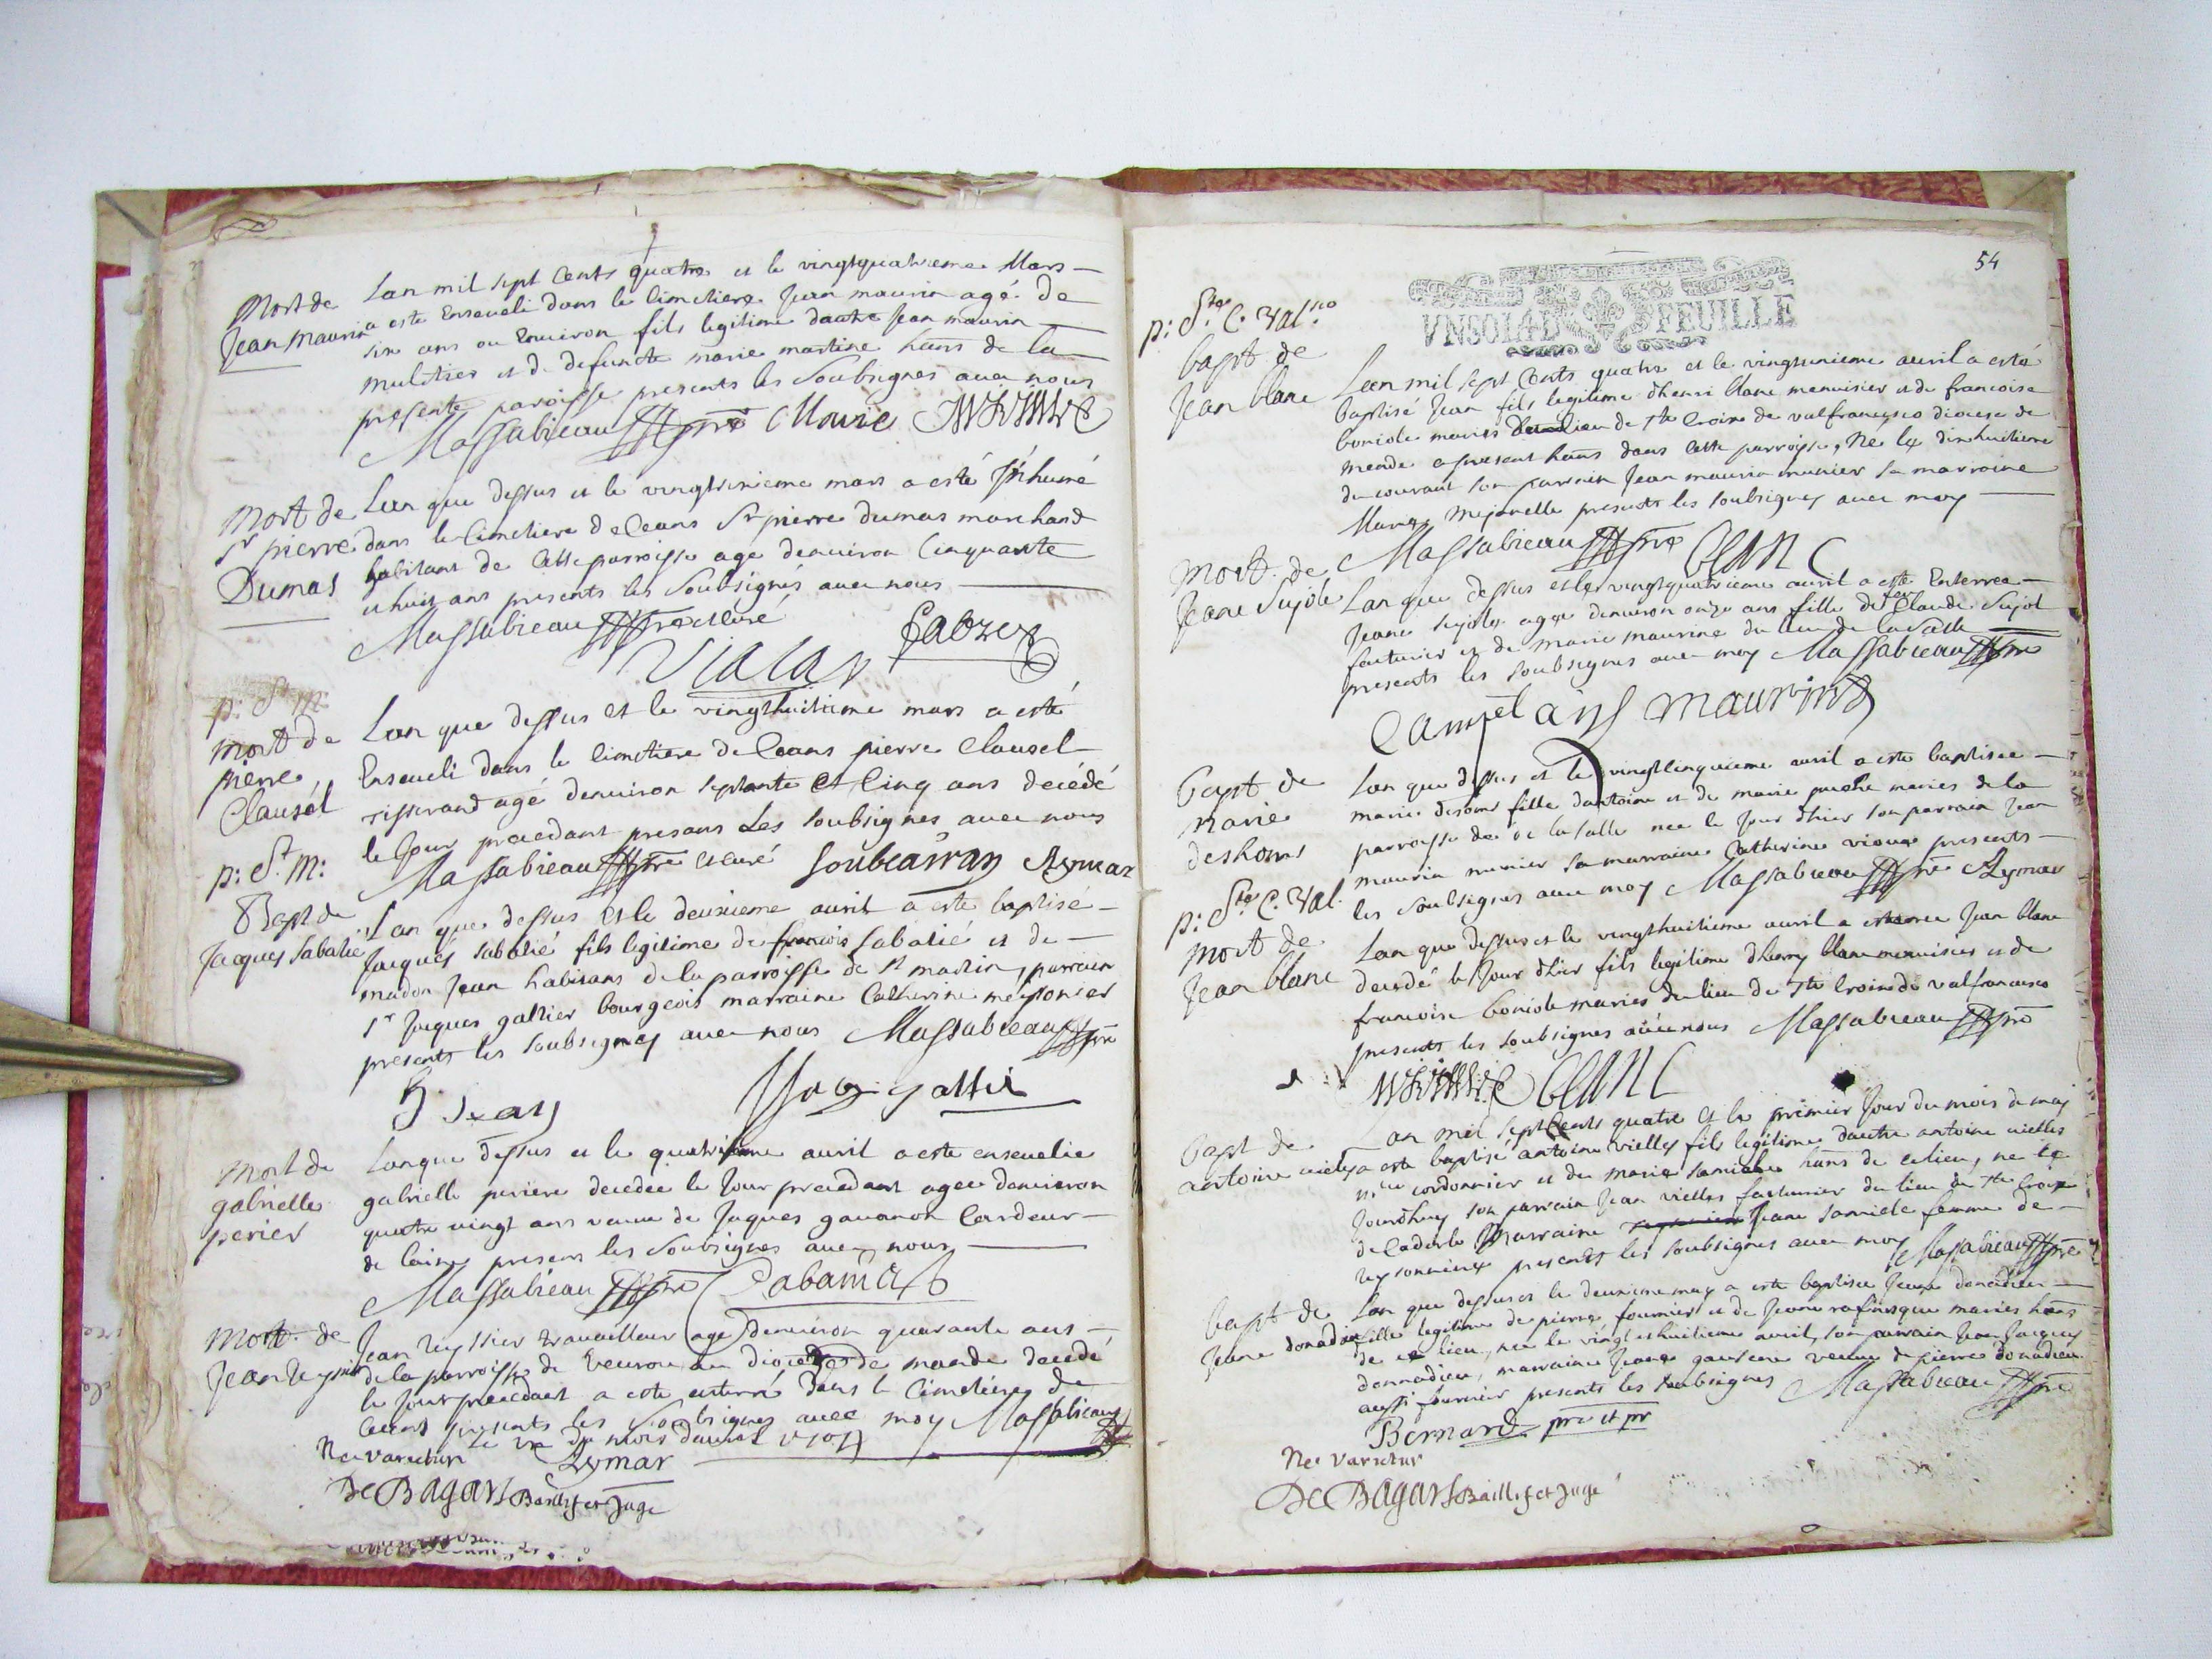 Mort de
Jean Maurin
Lan mil sept Cents quatre et le vingtquatrieme Mars
a esté Enseveli dans le Cimetiere Jean maurin agé de
six ans ou Environ fils legitime dautre Jean maurin
mulétier et de defuncte marie martine habns de la
presente paroisse presents les Soubsignes avec nous
Massabieau pre Mourie
Mort de
Sr pierre
Dumas
Lan que dessus et le vingtsixieme mars a esté Inhumé
dans le Cimetiere de Ceans Sr pierre dumas marchand
habitant de Cette parroisse agé denviron Cinquante
et huit ans presents les Soubsignés avec nous
Massabieau pre et curé
Vialar Fabre
p: St M:
Mort de
pierre
Clausel
Lan que dessus et le vingthuitieme mars a esté
Enseveli dans le Cimetiere de Ceans pierre Clausel
tisserand agé denviron septante et Cinq ans decédé
le Jour precedant presans Les soubsignes avec nous
Massabieau pre et curé Soubeairan Aymar
p: St M:
Bapt de
Jacques Sabatié
Lan que dessus et le deuxieme avril a esté baptisé
Jacques sabatié fils legitime de francois Sabatié et de
madon Jean habitans de la parroisse de St martin, parrain
Sr Jacques galtier bourgeois marraine Catherine meissonier
presents les soubsignes avec nous Massabieau pre
Mort de
gabrielle
perier
Lan que dessus et le quatrieme avril a esté ensevelie
gabrielle periere decedée le Jour precedant agee denviron
quatre vingt ans veuve de Jaques gavanon Cardeur
de laine presens les Soubsignes avec nous
Massabieau pre Cabanis
Mort de
Jean Reyssier
Jean Reyssier travailleur agé denviron quarante ans
de la parroisse de au dioceze de mande decedé
le Jour precedant a esté enterré dans le Cimetiere de
Ceans presents les Soubsignes avec moy Massabieau
le du mois davril 1704
Ne varietur Aymar
De Bagars Baillif et Juge
54
VN SOL 4 D FEUILLE
p: Ste C. Val
bapt de
Jean blanc
Lan mil sept Cents quatre et le vingtunieme avril a esté
baptisé Jean fils legitime dhenri blanc menuisier et de francoise
boniole mariés du lieu de Ste Croix de valfrancisco diocese de
mende a present habns dans Cette parroisse, Né le dixhuitieme
du courant son parrain Jean maurin munier sa marraine
Marie Mejanelle presents les soubsignes avec moy
Massabieau pre blanc
Mort de
Jeane Sujole
Lan que dessus et le vingtquatrieme avril a esté Enterrée
Jeane sujole agee denviron onze ans fille de feu Claude Sujol
facturier et de marie maurine du lieu de la Salle
presents les soubsignes avec moy Massabieau pre
Campel ayns maurin
bapt de
Marie
deshons
Lan que dessus et le vingtcinquieme avril a esté baptisée
marie deshons fille dantoine et de marie mariés de la
parroisse de la Salle née le Jour dhier son parrain Jean
maurin munier sa marraine Catherine presents
les Soubsignes avec moy Massabieau pre Aymar
p: Ste C. Val.
Mort de
Jean blanc
Lan que dessus et le vingthuitieme avril a Jean blanc
decedé le Jour dhier fils legitime dhenry blanc menuisier et de
francoise boniole mariés du lieu de Ste Croix de valfrancesco
presents les soubsignes avec nous Massabieau pre
blanc
bapt de
antoine vielles
Lan mil sept Cents quatre et le premier Jour du mois de may
a esté baptisé antoine vielles fils legitime dautre antoine vielles
cordonnier et de marie habns de ce lieu, né le
Jourdhuy son parrain Jean vielles facturier du lieu de Ste Croix
de Caderle Marraine Jeane femme de
presents les soubsignes avec moy Massabieau pre
bapt de
Jeane donadieu
Lan que dessus et le deuxieme may a esté baptisée Jeane donadieu
fille legitime de pierre, fournier et de Jeane mariés habns
de ce lieu, née le vingt et huitieme avril, son parrain Jean Jacques
donnadieu, marraine Jeane veuve de pierre donadieu
aussi fournier presents les soubsignes Massabieau pre
Bernard pre et pr
Ne varietur
De Bagars Baillif et Juge